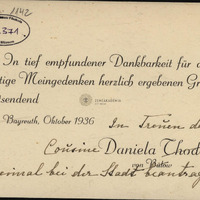 1142
371
In tief empfundener Dankbarkeit für d
tige Meingedenken herzlich ergebenen Gr
tsendend
Bayreuth, Oktober 1936
In Treuen de
Cousine Daniela Thod
von Bülow
einmal bei der Stadt beantrag